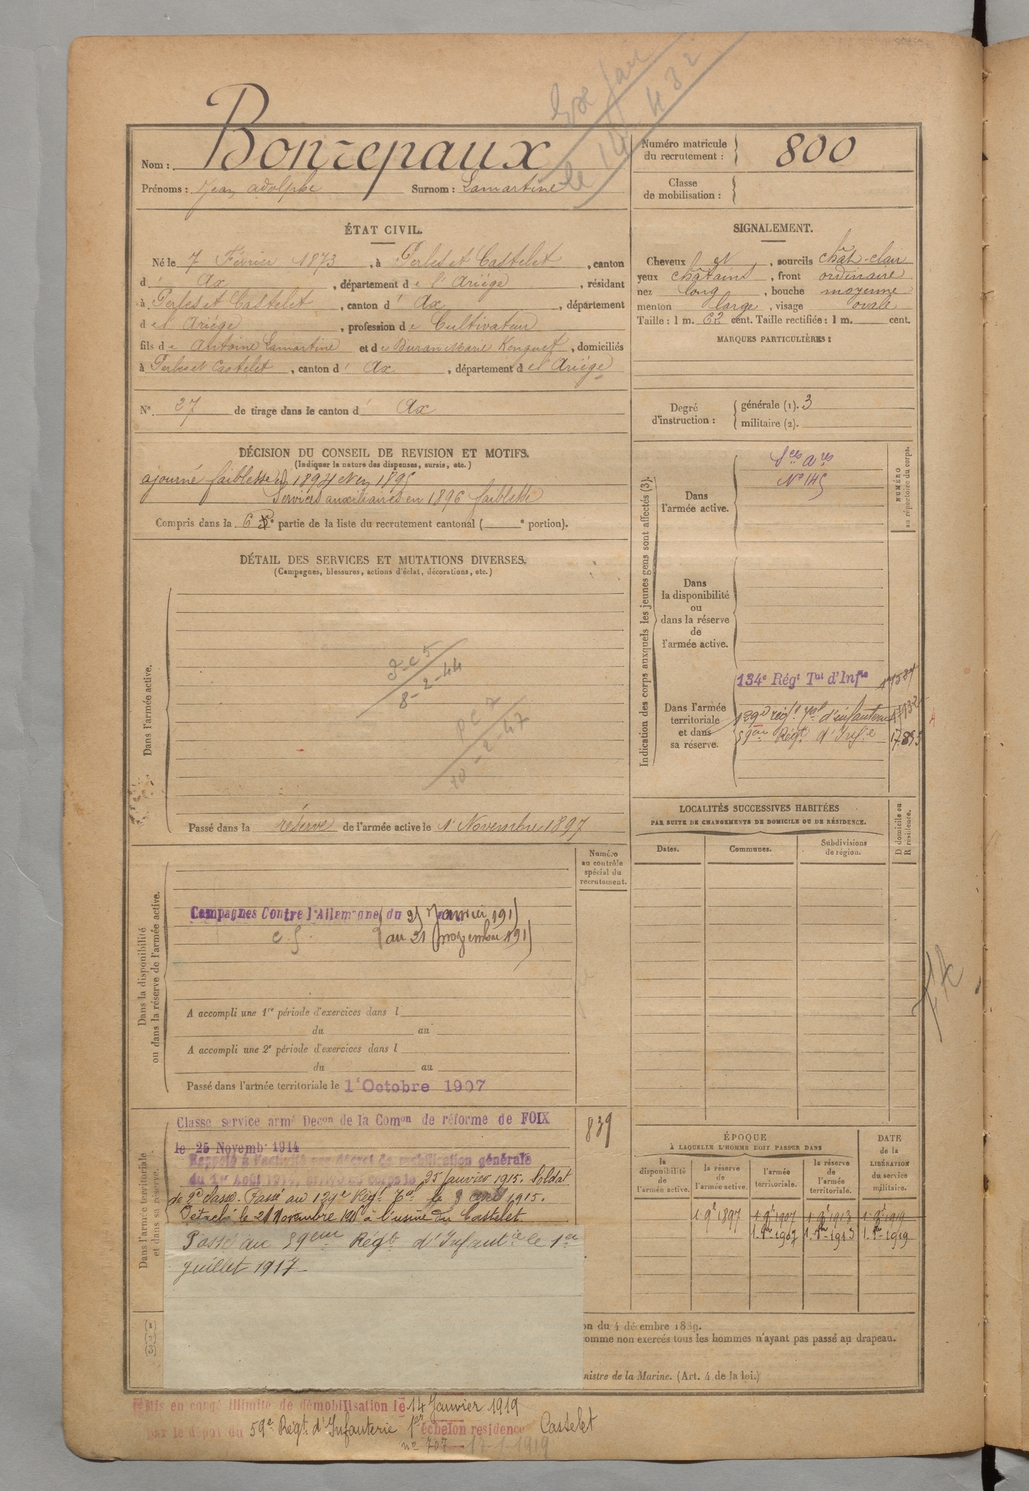 Nom : Bonrepaux
Prénoms : Jean Adolphe Surnom : Lamartine
Numéro matricule du recrutement : 800
Classe de mobilisation :
ÉTAT CIVIL.
Né le 7 Février 1873, à Perles et Castelet, canton
d' Ax, département de l'Ariége, résidant
à Perles et Castelet, canton d' Ax, département
de l'Ariége, profession de Cultivateur
fils de Antoine Lamartine et de Marie, domiciliés
à Perles et Castelet, canton d' Ax, département de l'Ariége
N° 27 de tirage dans le canton d' Ax
SIGNALEMENT.
Cheveux et, sourcils chât-clair
yeux châtains, front ordinaire
nez long, bouche moyenne
menton large, visage ovale
Taille : 1 m. 62 cent. Taille rectifiée : 1 m. cent.
MARQUES PARTICULIÈRES :
Degré d'instruction : générale (1). 3
militaire (2).
DÉCISION DU CONSEIL DE REVISION ET MOTIFS.
(Indiquer la nature des dispenses, sursis, etc.)
ajourné faiblesse 1894 1895
Services auxiliaires en 1896 faiblesse
Compris dans la 6e partie de la liste du recrutement cantonal ( e portion).
DÉTAIL DES SERVICES ET MUTATIONS DIVERSES.
(Campagnes, blessures, actions d'éclat, décorations, etc.)
Dans l'armée active.
8-2-44
10-2-47
Passé dans la réserve de l'armée active le 1er Novembre 1897
Indication des corps auxquels les jeunes gens sont affectés (3).
NUMÉRO au répertoire du corps.
Dans l'armée active.
Sces Ares
N° 145
Dans la disponibilité ou dans la réserve de l'armée active.
Dans l'armée territoriale et dans sa réserve.
134e Régt Tal d'Infie
139e régt Tal d'infanterie
59ème Régt d'Infie
LOCALITÉS SUCCESSIVES HABITÉES
PAR SUITE DE CHANGEMENTS DE DOMICILE OU DE RÉSIDENCE.
Dates. Communes. Subdivisions de région. D. domicile ou R. résidence.
Numéro au contrôle spécial du recrutement.
Dans la disponibilité ou dans la réserve de l'armée active.
Campagnes Contre l'Allemagne du 25 Janvier 1915
au 21 novembre 1915
A accompli une 1re période d'exercices dans l
du au
A accompli une 2e période d'exercices dans l
du au
Passé dans l'armée territoriale le 1er Octobre 1907
839
Dans l'armée territoriale et dans sa réserve.
Classé service armé Decon de la Comon de réforme de FOIX
le 25 Novemb 1914
Rappelé à l'activité par décret de mobilisation générale
du 1er Août 1914, arrivé au corps le 25 Janvier 1915. Soldat
de 2e classe. Passé au 139e Régt Tal le 3 avril 1915.
Détaché le 21 Novembre 1915 à l'usine du Castelet.
Passé au 59ème Régt d'Infantie le 1er
juillet 1917
ÉPOQUE
À LAQUELLE L'HOMME DOIT PASSER DANS
la disponibilité de l'armée active. la réserve de l'armée active. l'armée territoriale. la réserve de l'armée territoriale.
DATE de la LIBÉRATION du service militaire.
1 9e 1897 1 9e 1907 1 9e 1913 1 9e 1919
1907 1913 1919
on du 4 décembre 1889.
omme non exercés tous les hommes n'ayant pas passé au drapeau.
nistre de la Marine. (Art. 4 de la loi.)
Mis en congé illimité de démobilisation le 14 Janvier 1919
par le dépôt du 59e Régt d'Infanterie 1er échelon résidence Castelet
n° 707 17-1-1919